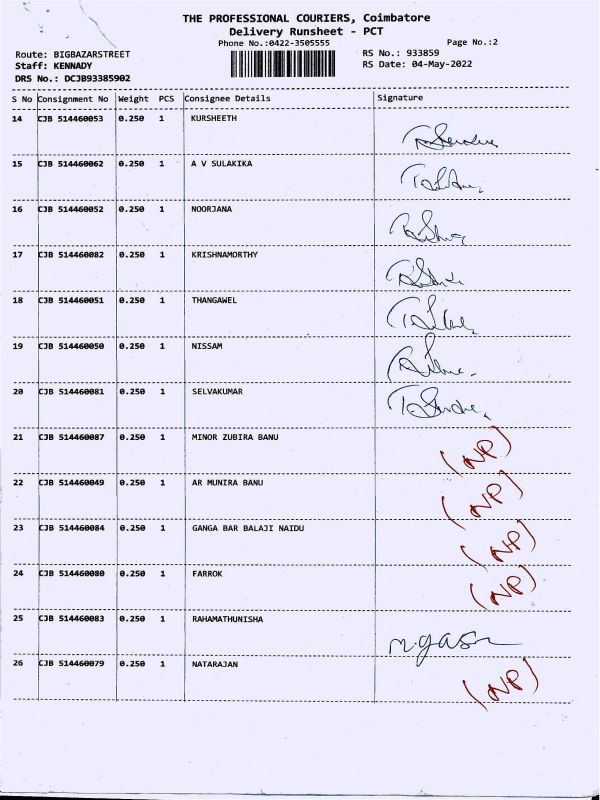 THE PROFESSIONAL COURIERS, Coimbatore
Delivery Runsheet - PCT
Phone No.:0422-3505555
Page No.:2
Route: BIGBAZARSTREET
RS No.: 933859
Staff: KENNADY
RS Date: 04-May-2022
DRS No.: DCJB93385902
S No Consignment No Weight PCS Consignee Details Signature
14 CJB 514460053 0.250 1 KURSHEETH
15 CJB 514460062 0.250 1 A V SULAKIKA
16 CJB 514460052 0.250 1 NOORJANA
17 CJB 514460082 0.250 1 KRISHNAMORTHY
18 CJB 514460051 0.250 1 THANGAWEL
19 CJB 514460050 0.250 1 NISSAM
20 CJB 514460081 0.250 1 SELVAKUMAR
21 CJB 514460087 0.250 1 MINOR ZUBIRA BANU (NP)
22 CJB 514460049 0.250 1 AR MUNIRA BANU (NP)
23 CJB 514460084 0.250 1 GANGA BAR BALAJI NAIDU (NP)
24 CJB 514460080 0.250 1 FARROK (NP)
25 CJB 514460083 0.250 1 RAHAMATHUNISHA
26 CJB 514460079 0.250 1 NATARAJAN (NP)